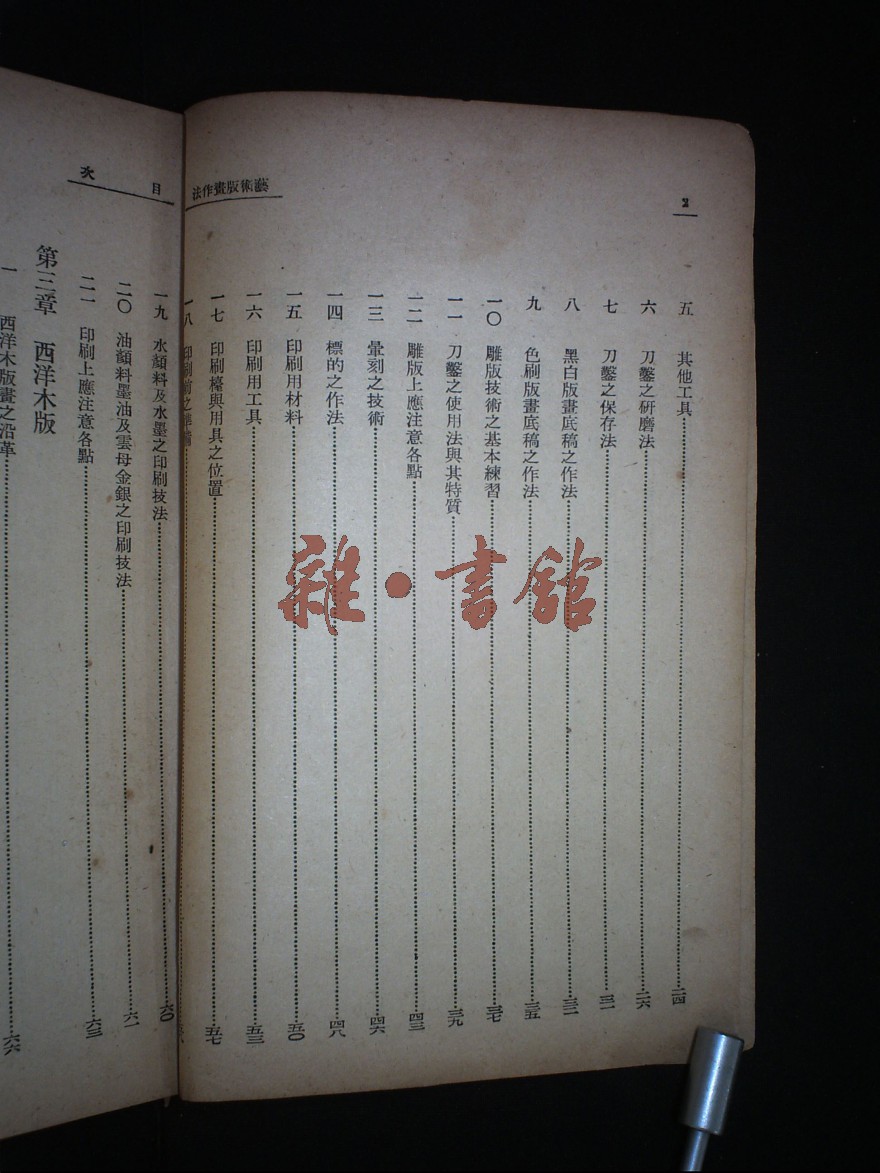 2
藝術版畫作法
五 其他工具 二四
六 刀鑿之研磨法 二六
七 刀鑿之保存法 三一
八 黑白版畫底稿之作法 三二
九 色刷版畫底稿之作法 三五
一〇 雕版技術之基本練習 三七
一一 刀鑿之使用法與其特質 三九
一二 雕版上應注意各點 四三
一三 暈刻之技術 四六
一四 標的之作法 四八
一五 印刷用材料 五〇
一六 印刷用工具 五三
一七 印刷檯與用具之位置 五七
一八 印刷前之準備
目次
一九 水顏料及水墨之印刷技法 六〇
二〇 油顏料墨油及雲母金銀之印刷技法 六一
二一 印刷上應注意各點 六三
第三章 西洋木版
一 西洋木版畫之沿革 六六
雜·書館